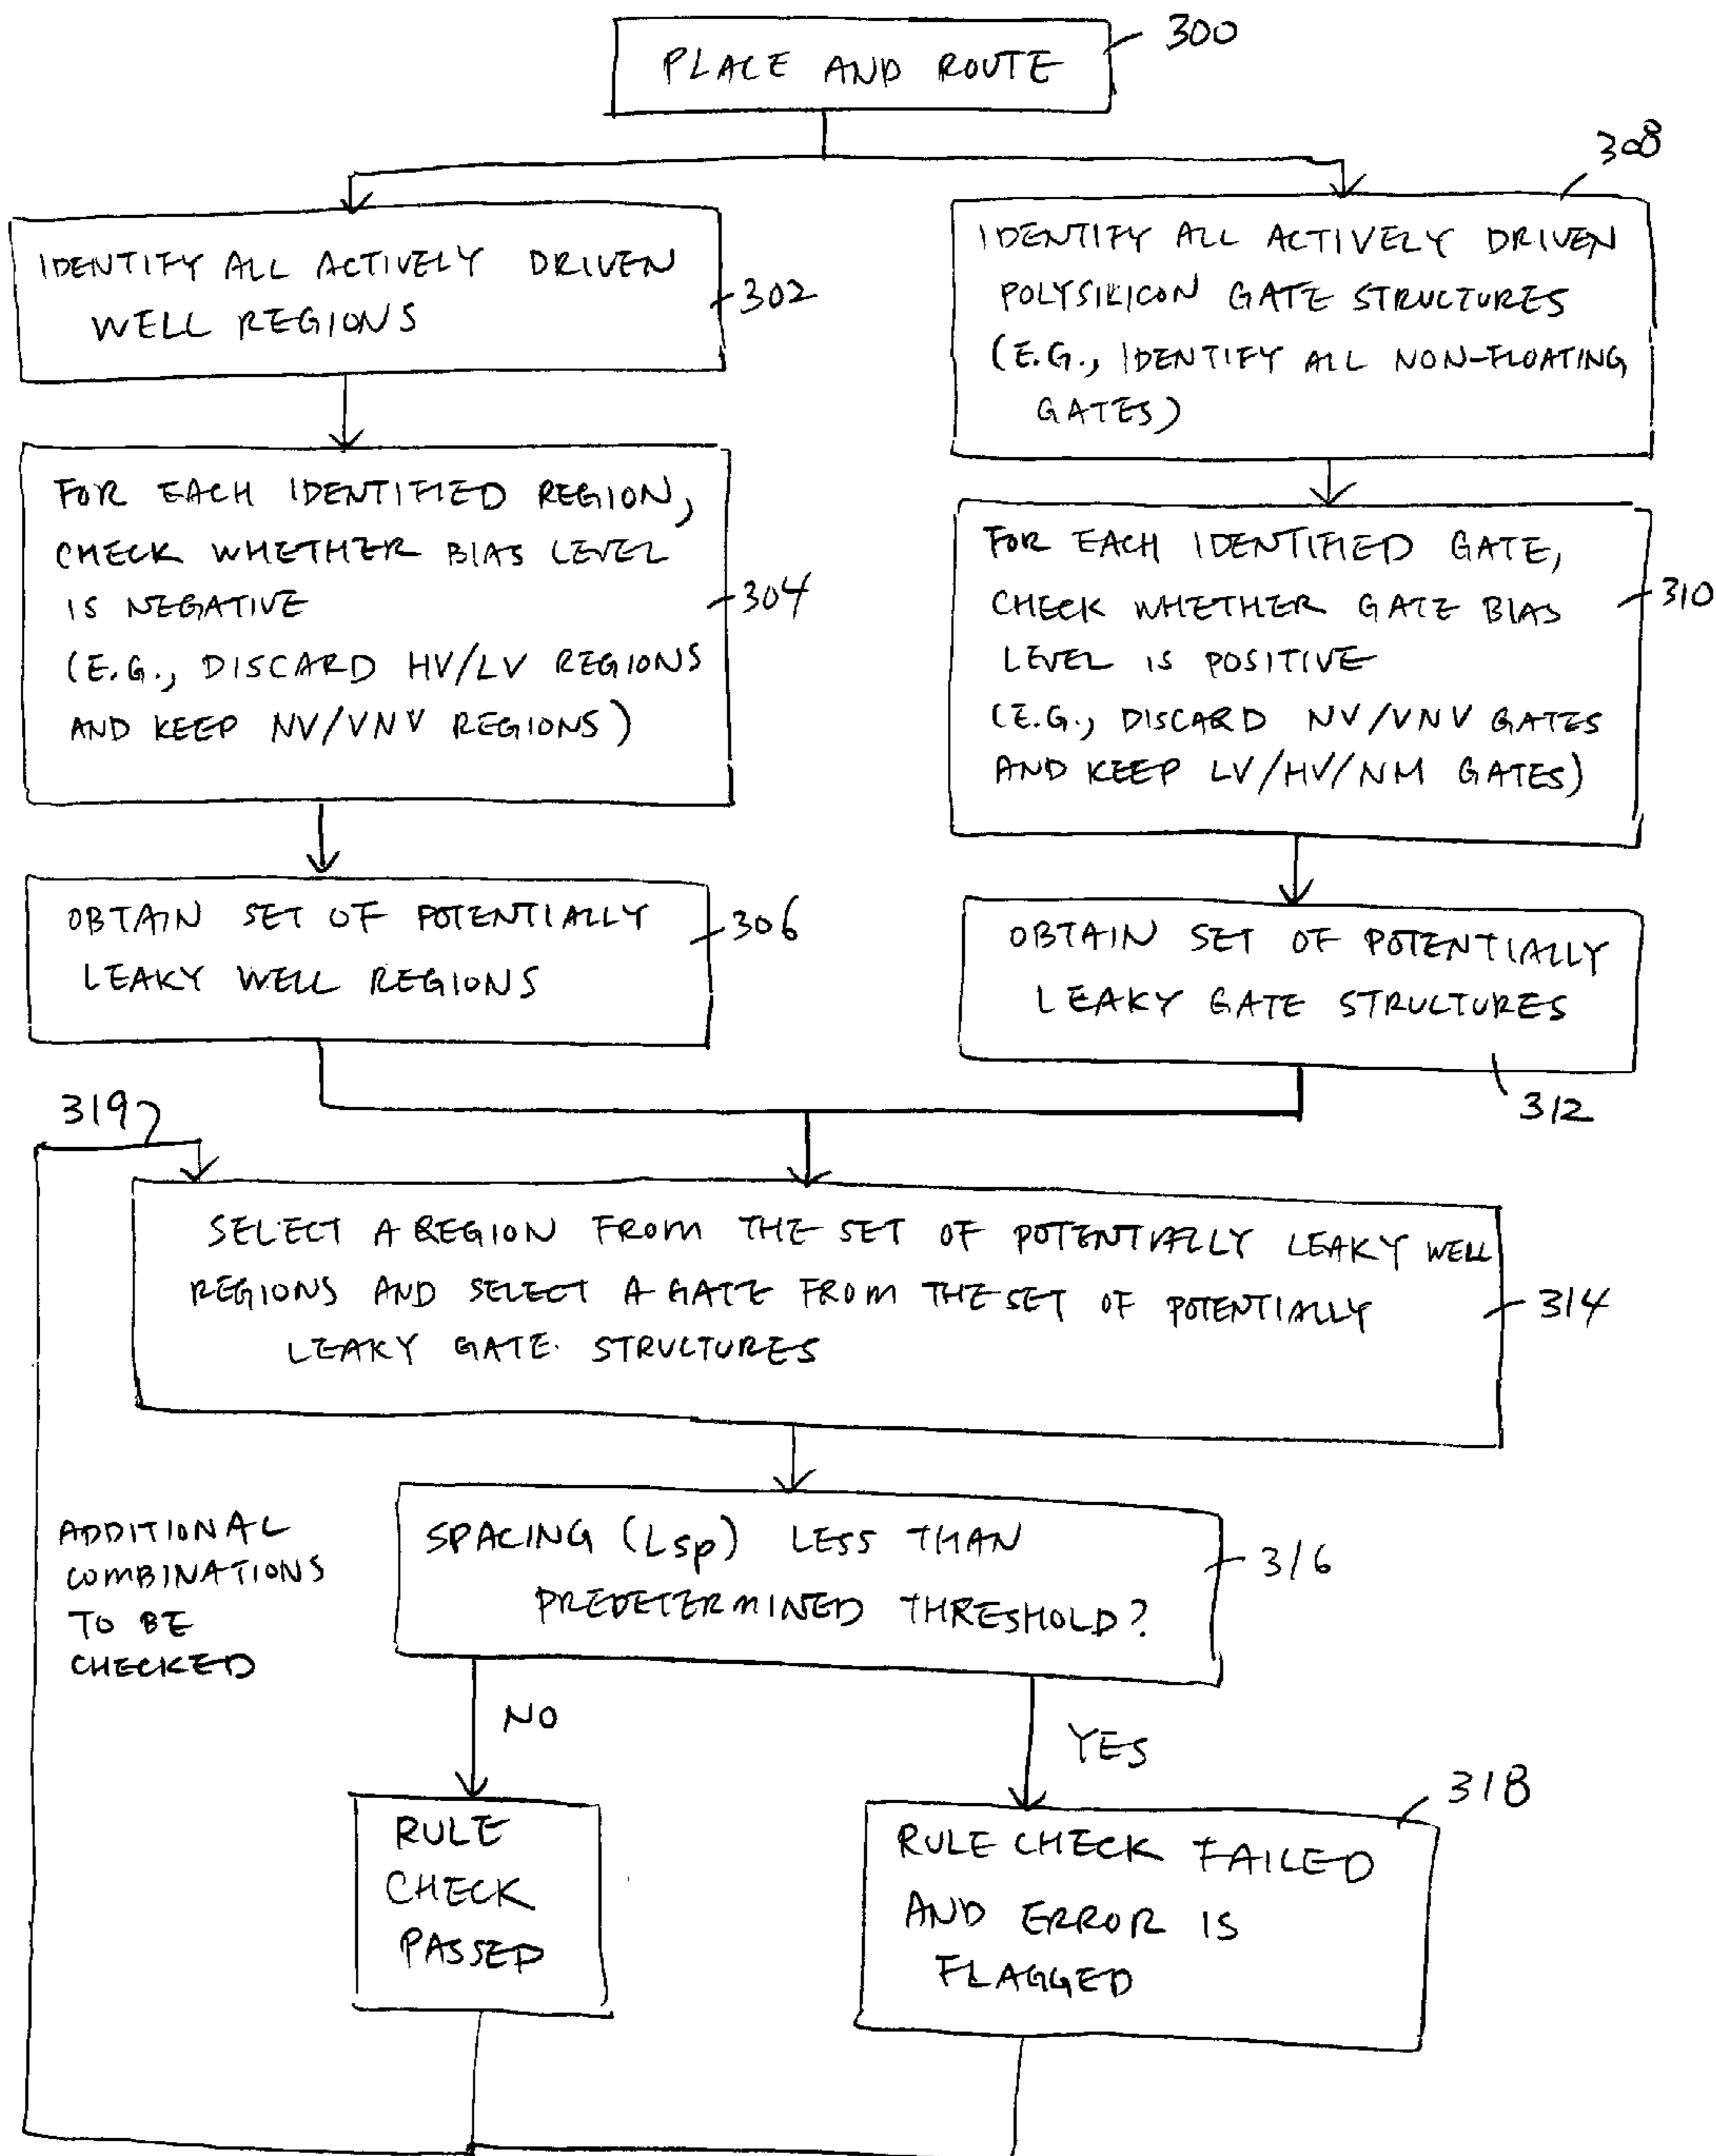 PLACE AND ROUTE
300
IDENTIFY ALL ACTIVELY DRIVEN
WELL REGIONS
302
308
IDENTIFY ALL ACTIVELY DRIVEN
POLYSILICON GATE STRUCTURES
(E.G., IDENTIFY ALL NON-FLOATING
GATES)
FOR EACH IDENTIFIED REGION,
CHECK WHETHER BIAS LEVEL
IS NEGATIVE
(E.G., DISCARD HV/LV REGIONS
AND KEEP NV/VNV REGIONS)
304
FOR EACH IDENTIFIED GATE,
CHECK WHETHER GATE BIAS
LEVEL IS POSITIVE
(E.G., DISCARD NV/VNV GATES
AND KEEP LV/HV/NM GATES)
310
OBTAIN SET OF POTENTIALLY
LEAKY WELL REGIONS
306
OBTAIN SET OF POTENTIALLY
LEAKY GATE STRUCTURES
312
319
SELECT A REGION FROM THE SET OF POTENTIALLY LEAKY WELL
REGIONS AND SELECT A GATE FROM THE SET OF POTENTIALLY
LEAKY GATE STRUCTURES
314
SPACING (Lsp) LESS THAN
PREDETERMINED THRESHOLD?
316
ADDITIONAL
COMBINATIONS
TO BE
CHECKED
NO
YES
RULE
CHECK
PASSED
318
RULE CHECK FAILED
AND ERROR IS
FLAGGED